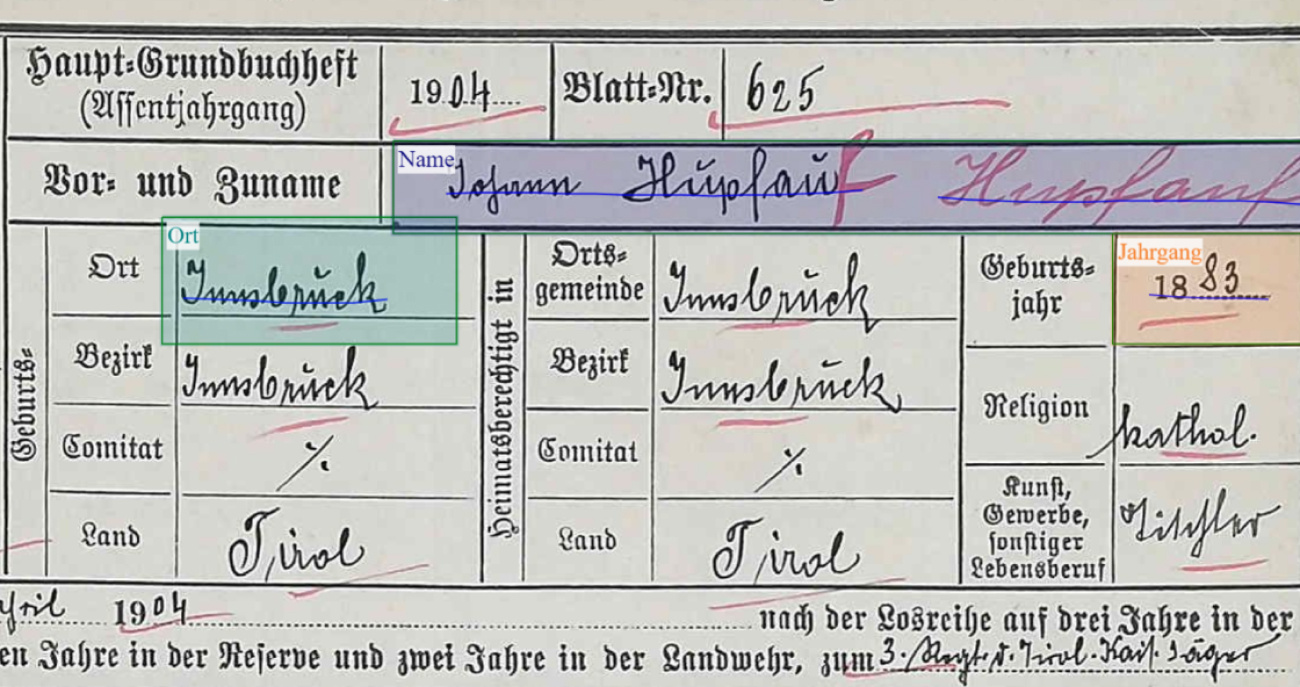 Haupt-Grundbuchheft
(Assentjahrgang)
1904
Blatt-Nr.
625
Vor- und Zuname
Name
Johann Hupfauf Hupfauf
Geburts-
Ort
Ort
Innsbruck
Bezirk
Innsbruck
Comitat
·/.
Land
Tirol
Heimatsberechtigt in
Orts-
gemeinde
Innsbruck
Bezirk
Innsbruck
Comitat
·/.
Land
Tirol
Geburts-
jahr
Jahrgang
1883
Religion
kathol.
Kunst,
Gewerbe,
sonstiger
Lebensberuf
Tischler
1904 nach der Losreihe auf drei Jahre in der
en Jahre in der Reserve und zwei Jahre in der Landwehr, zum 3. Regt. d. Tirol. Kais. Jäger